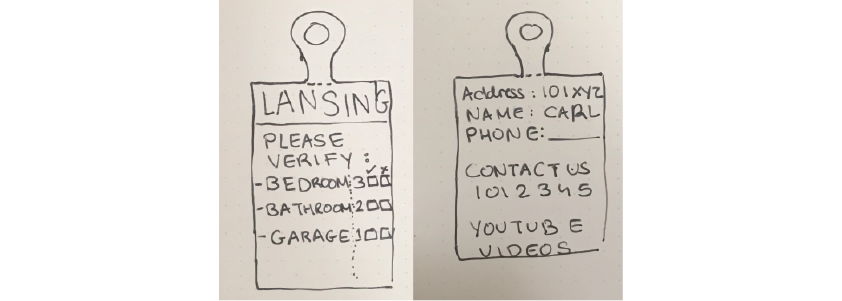 LANSING
PLEASE
VERIFY :
- BEDROOM: 3 ✓ ×
- BATHROOM: 2
- GARAGE 1
Address : 101XYZ
NAME : CARL
PHONE: ____
CONTACT US
1012345
YOUTUBE
VIDEOS